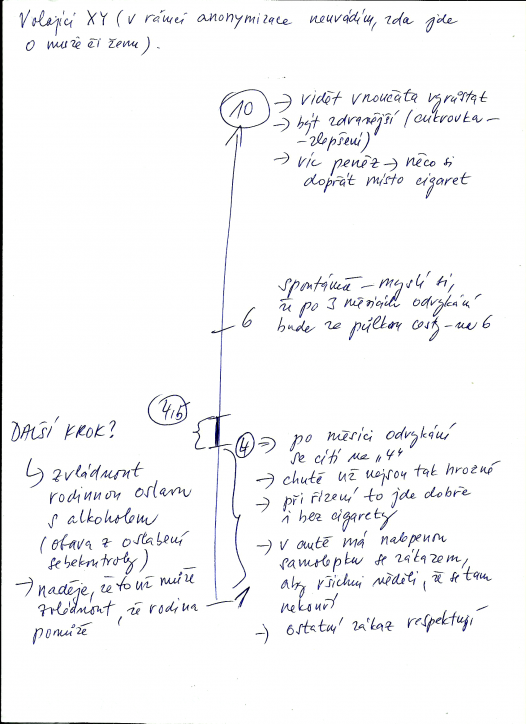 Volající XY (v rámci anonymizace neuvádím, zda jde
o muže či ženu).
10
→ vidět vnoučata vyrůstat
→ být zdravější (cukrovka –
– zlepšení)
→ víc peněz → něco si
dopřát místo cigaret
6
spontánně – myslí si,
že po 3 měsících odvykání
bude za půlkou cesty – na 6
4,5
DALŠÍ KROK?
↳ zvládnout
rodinnou oslavu
s alkoholem
(obava z oslabení
sebekontroly)
→ naděje, že to už může
zvládnout, že rodina
pomůže
4 ⇒ po měsíci odvykání
se cítí na „4“
→ chutě už nejsou tak hrozné
→ při řízení to jde dobře
i bez cigarety
→ v autě má nalepenou
samolepku se zákazem,
aby všichni věděli, že se tam
nekouří
→ ostatní zákaz respektují
1